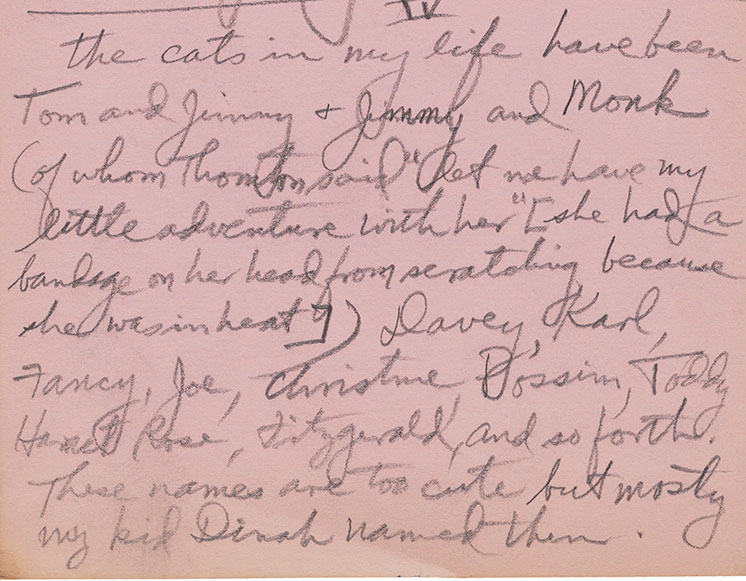 IV
the cats in my life have been
Tom and Jinny + Jimmy and Monk
(of whom Thornton said "let me have my
little adventure with her" [she had a
bandage on her head from scratching because
she was in heat]) Davey, Karl,
Fancy, Joe, Christine, Possim, Toddy
Rose, Fitzgerald, and so forth.
These names are too cute but mostly
my kid Dinah named them.